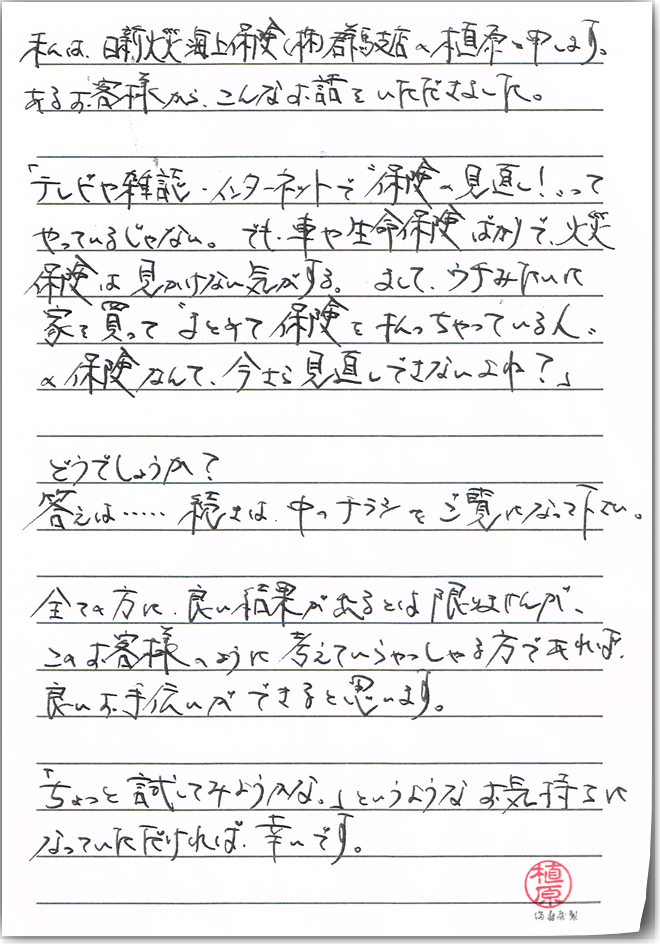 私は、日新火災海上保険(株)群馬支店の植原と申します。
あるお客様から、こんなお話をいただきました。
「テレビや雑誌・インターネットで“保険の見直し!”って
やっているじゃない。でも、車や生命保険ばかりで、火災
保険は見かけない気がする。まして、ウチみたいに
家を買って“まとめて保険を払っちゃっている人”
の保険なんて、今さら見直しできないよね?」
どうでしょうか?
答えは…… 続きは、中のチラシをご覧になって下さい。
全ての方に、良い結果があるとは限りませんが、
このお客様のように考えていらっしゃる方であれば、
良いお手伝いができると思います。
「ちょっと試してみようかな。」というようなお気持ちに
なっていただければ、幸いです。
植原